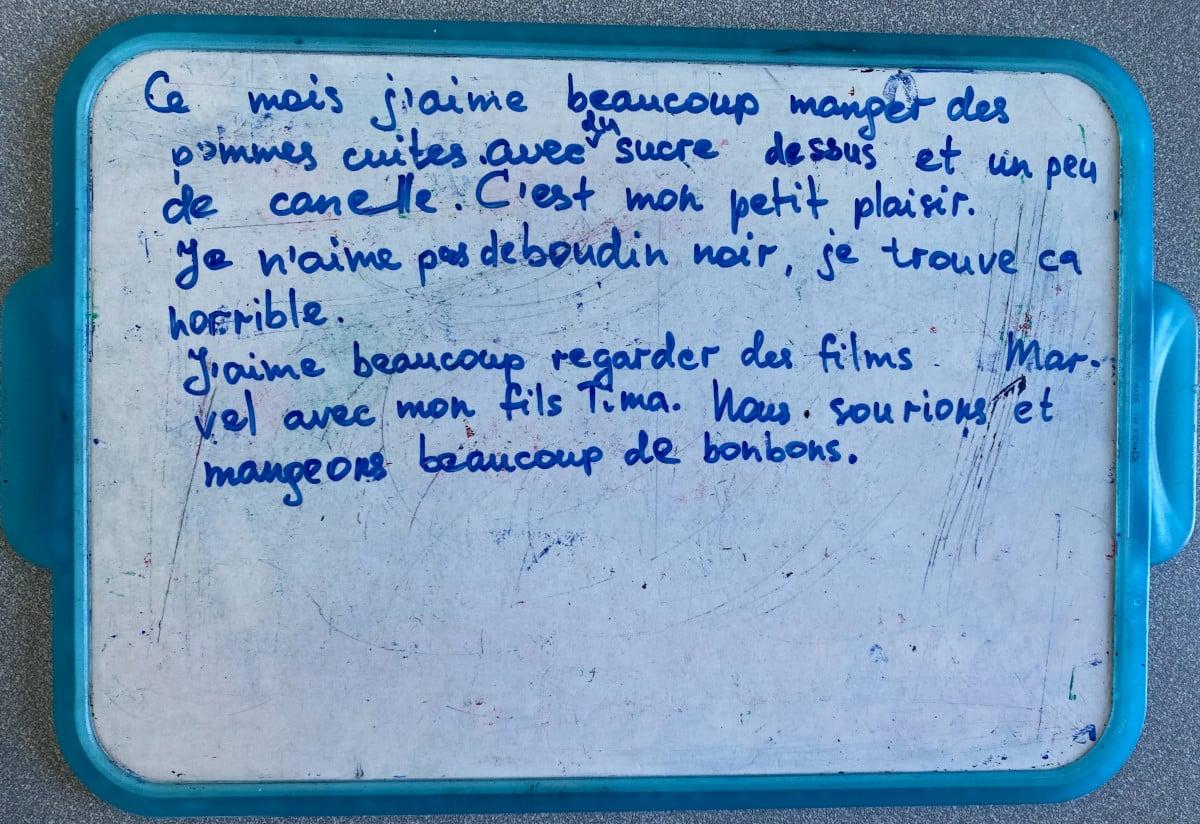 Ce mois j'aime beaucoup manger des
pommes cuites avec du sucre dessus et un peu
de canelle. C'est mon petit plaisir.
Je n'aime pas de boudin noir, je trouve ca
horrible.
J'aime beaucoup regarder des films Mar-
vel avec mon fils Tima. Nous sourions et
mangeons beaucoup de bonbons.